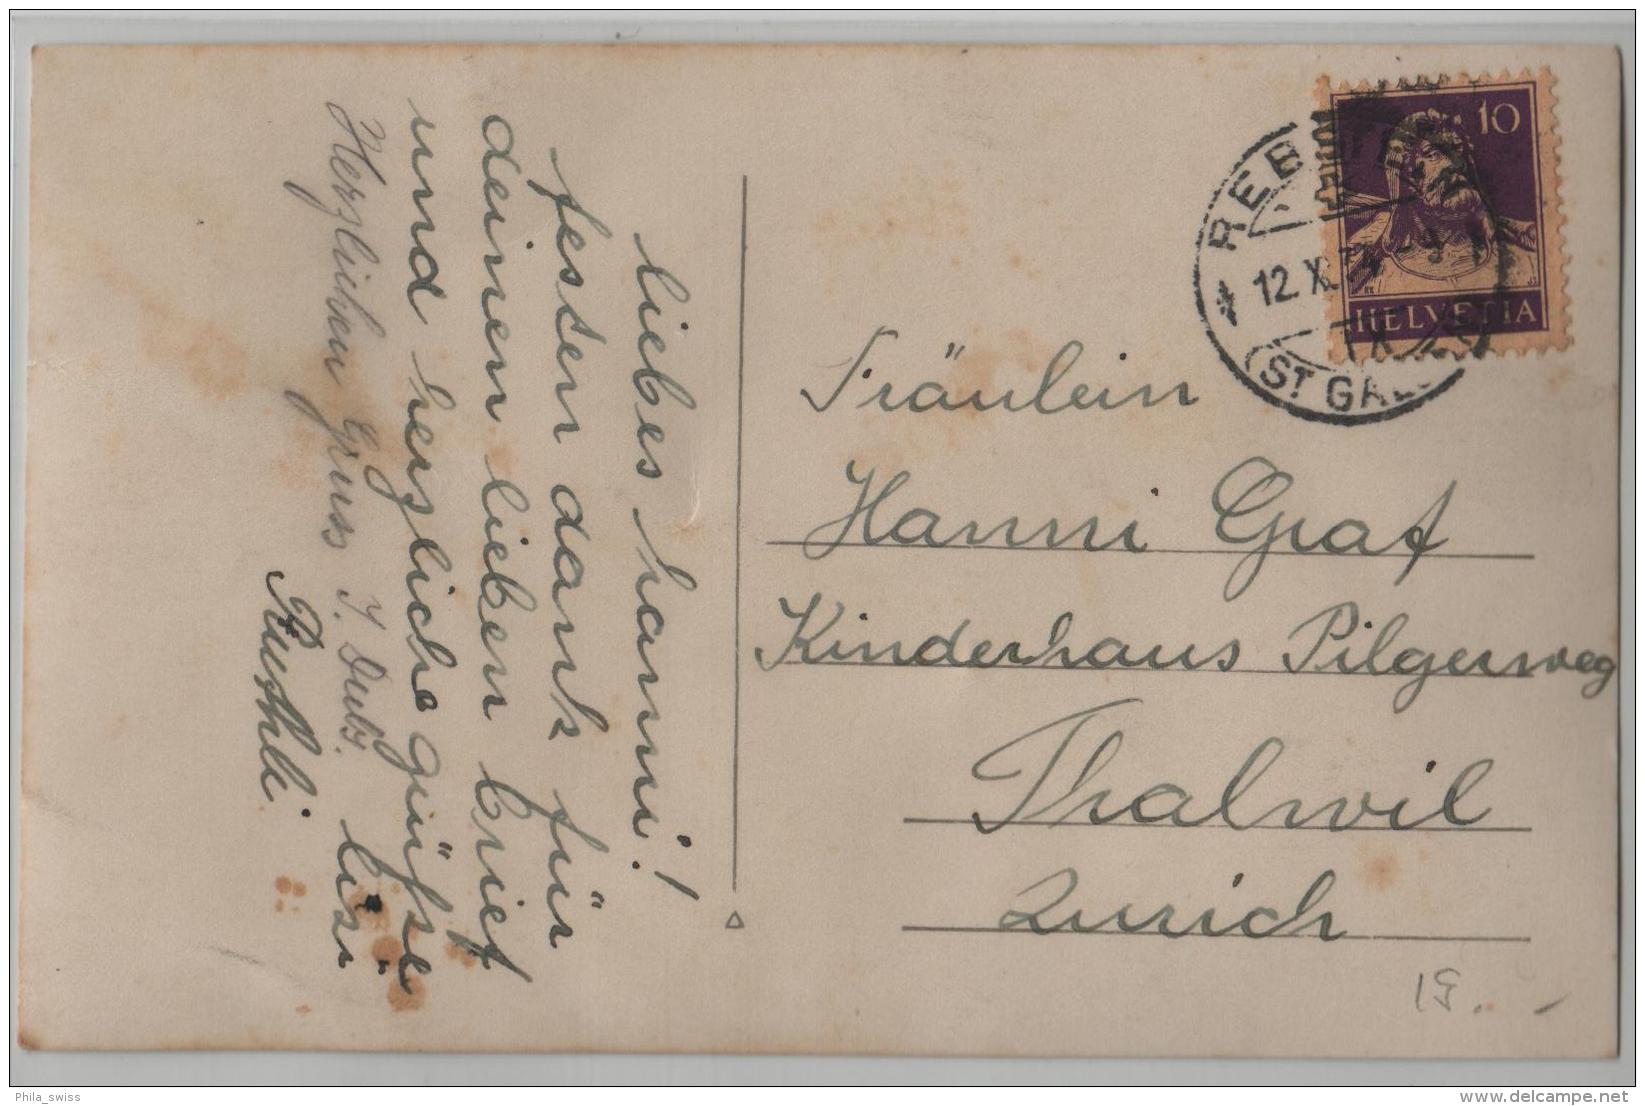 liebes hanni!
festen dank für
deinen lieben brief
und herzliche grüsse
lisi
Herzlichen Gruss J.
Ruthli.
10
HELVETIA
REBSTEIN
12. X.
(ST GALLEN)
Fräulein
Hanni Graf
Kinderhaus Pilgerweg
Thalwil
Zurich
19.-
Phila_swiss
delcampe.net